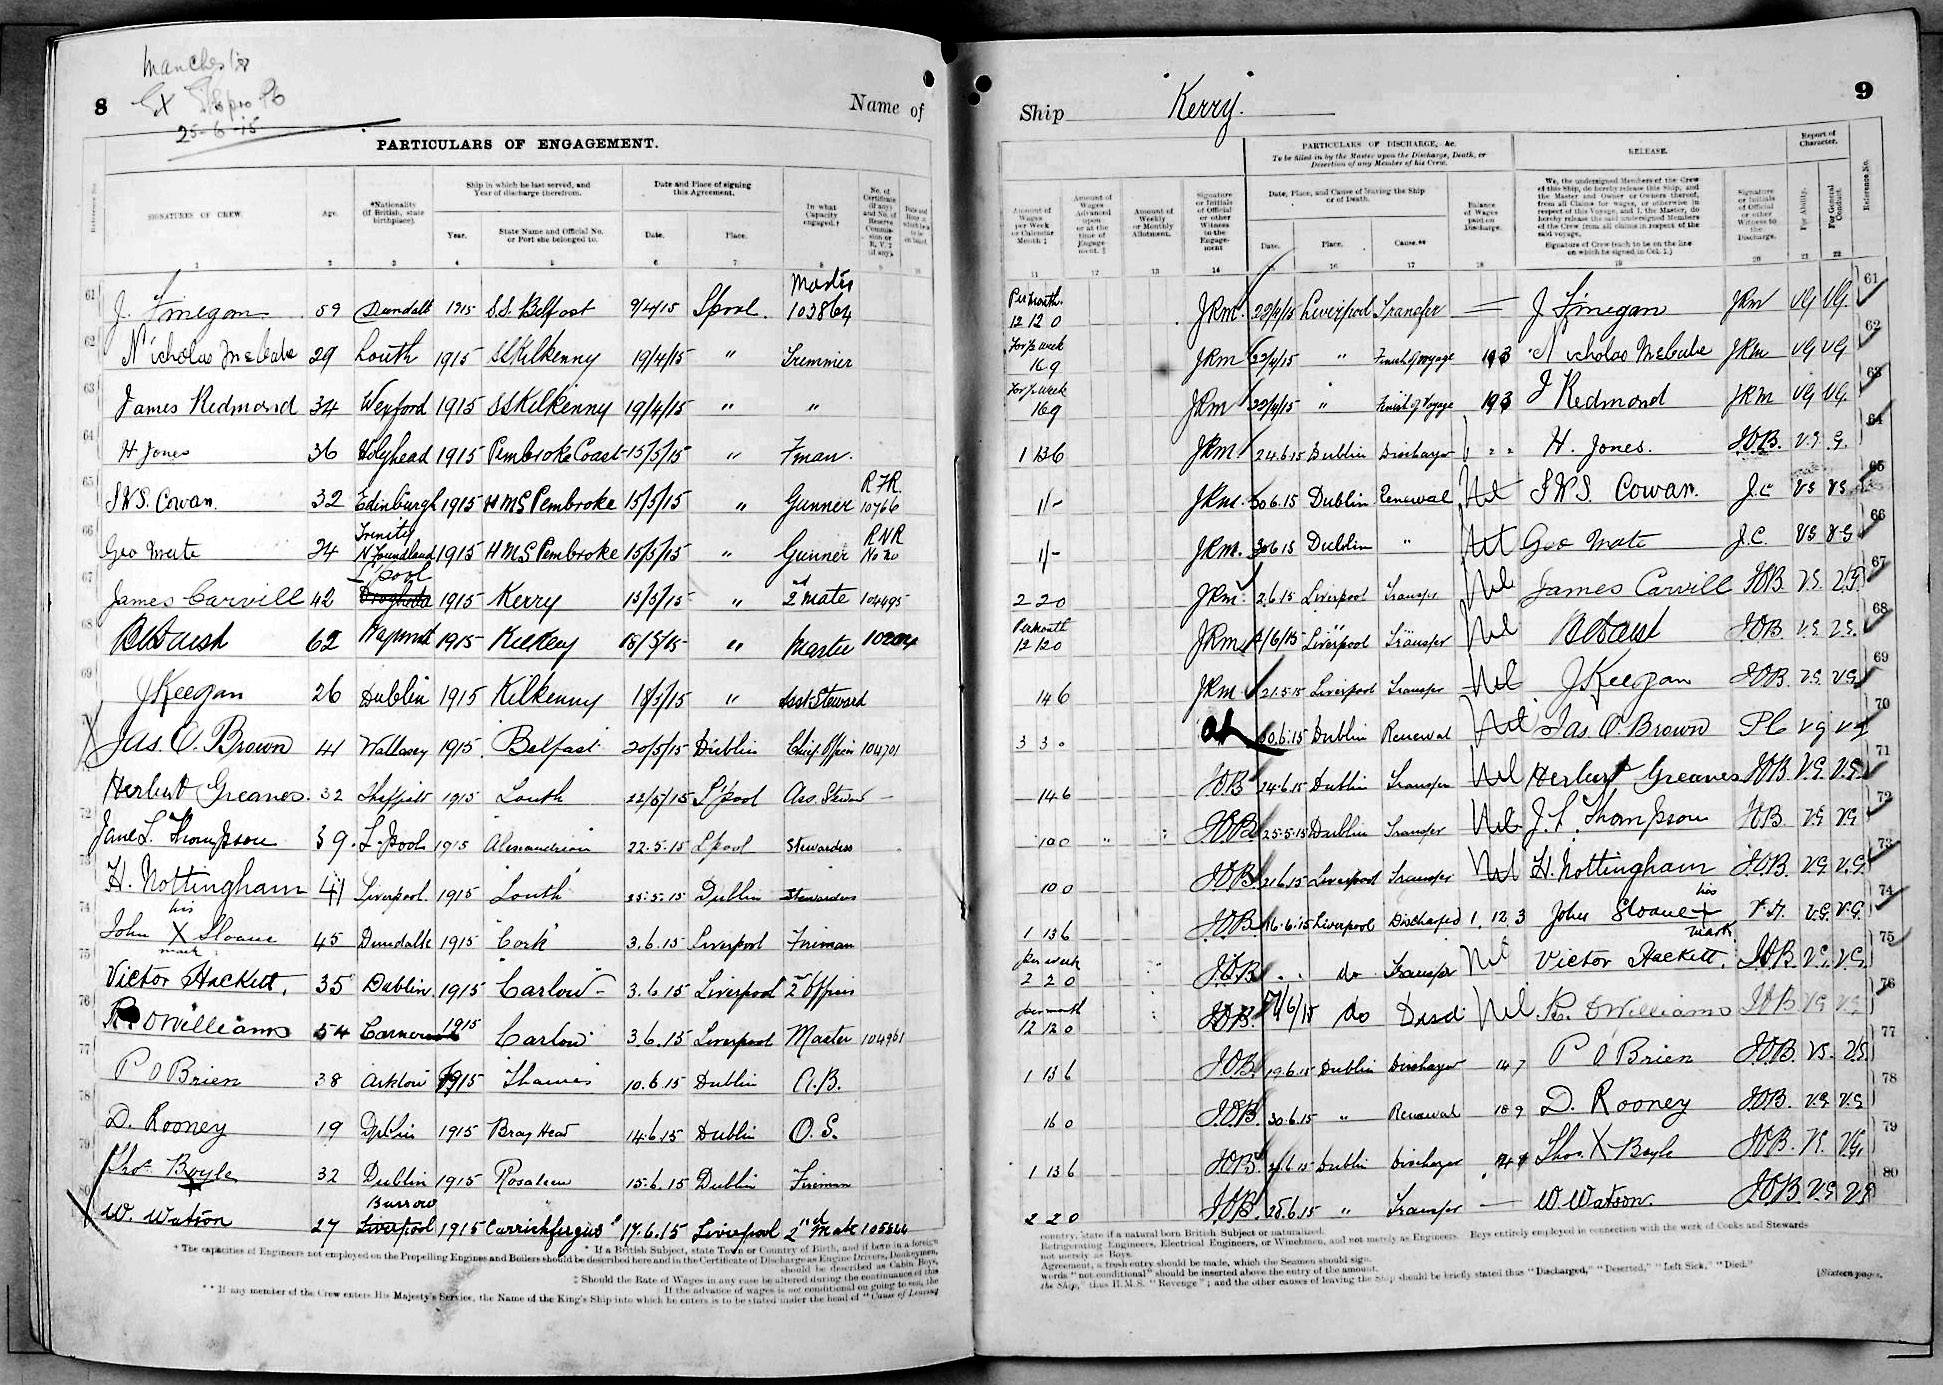 8
Manchester
25-6-15
Name of
PARTICULARS OF ENGAGEMENT.
SIGNATURES OF CREW
Age.
*Nationality (If British, state birthplace).
Ship in which he last served, and Year of discharge therefrom.
Year.
State Name and Official No. or Port she belonged to.
Date and Place of signing this Agreement.
Date.
Place.
In what Capacity engaged.†
1 2 3 4 5 6 7 8 9 10
61 J. Finegan 59 Dundalk 1915 S.S. Belfast 9/4/15 L'pool. Master 103864
62 Nicholas McCabe 29 Louth 1915 SS Kilkenny 19/4/15 " Trimmer
63 James Redmond 34 Wexford 1915 SS Kilkenny 19/4/15 " "
64 H Jones 36 Holyhead 1915 Pembroke Coast 15/5/15 " Fman.
65 J.W.S. Cowan. 32 Edinburgh 1915 HMS Pembroke 15/5/15 " Gunner R.F.R. 10766
66 Geo Mate 24 Trinity N Foundland 1915 HMS Pembroke 15/5/15 " Gunner RNR
67 James Carvill 42 L'pool Drogheda 1915 Kerry 15/5/15 " 2nd mate 104495
68 62 1915 18/5/15 " Master
69 J Keegan 26 Dublin 1915 Kilkenny 18/5/15 " Asst Steward
Jas. O. Brown 41 Wallasey 1915. Belfast 20/5/15 Dublin Chief Officer 104701
Herbert Greaves. 32 Sheffield 1915 Louth 22/5/15 L'pool Ass. Steward
72 Jane L. Thompson 39. L. Pool 1915 22.5.15 L'pool Stewardess
73 H. Nottingham 41 Liverpool. 1915 "Louth" 25.5.15 Dublin Stewardess
74 John his X mark Sloane 45 Dundalk 1915 "Cork" 3.6.15 Liverpool Fireman
75 Victor Hackett. 35 Dublin 1915 "Carlow" 3.6.15 Liverpool 2nd Officer
76 R O Williams 54 1915 Carlow 3.6.15 Liverpool Master 104961
77 P O Brien 38 Arklow 1915 Thames 10.6.15 Dublin A.B.
78 D. Rooney 19 Dublin 1915 Bray Head 14.6.15 Dublin O.S.
79 Thos. X Boyle 32 Dublin 1915 15.6.15 Dublin Fireman
W. Watson 27 Barrow Liverpool 1915 Carrickfergus 17.6.15 Liverpool 2nd Mate
* If a British Subject, state Town or Country of Birth, and if born in a foreign
† The capacities of Engineers not employed on the Propelling Engines and Boilers should be described here and in the Certificate of Discharge as Engine Drivers, Donkeymen,
should be described as Cabin Boys,
‡ Should the Rate of Wages in any case be altered during the continuance of this
If the advance of wages is not conditional on going to sea, the
** If any member of the Crew enters His Majesty's Service, the Name of the King's Ship into which he enters is to be stated under the head of "Cause of Leaving
Ship "Kerry".
9
PARTICULARS OF DISCHARGE, &c.
To be filled in by the Master upon the Discharge, Death, or Desertion of any Member of his Crew.
RELEASE.
Report of Character.
Reference No.
Amount of Wages per Week or Calendar Month ‡
Amount of Wages Advanced upon or at the time of Engagement. ‡
Amount of Weekly or Monthly Allotment.
Signature or Initials of Official or other Witness to the Engagement
Date, Place, and Cause of leaving the Ship or of Death.
Date.
Place.
Cause.**
Balance of Wages paid on Discharge.
We, the undersigned Members of the Crew of this Ship, do hereby release this Ship, and the Master and Owner or Owners thereof, from all Claims for wages, or otherwise in respect of this Voyage, and I, the Master, do hereby release the said undersigned Members of the Crew from all claims in respect of the said voyage.
Signature of Crew (each to be on the line on which he signed in Col. 1.)
Signature or Initials of Official or other Witness to the Discharge.
For Ability.
For General Conduct.
11 12 13 14 15 16 17 18 19 20 21 22
Per month. 12 12 0 JRM. 22/4/15 Liverpool Transfer J Finegan JRM VG VG. 61
For ½ week 16 9 JRM 22/4/15 " Finish of voyage 19 3 Nicholas McCabe JRM VG VG 62
For ½ week 16 9 JRM 22/4/15 " Finish of Voyage 19 3 J Redmond JRM VG VG. 63
1 13 6 JRM 24.6.15 Dublin Discharged H. Jones. JOB. V.G. G. 64
1/- JRM. 30.6.15 Dublin Renewal Nil J W S Cowan. J.C VG VG 65
1/- JRM. 30.6.15 Dublin " Nil Geo Mate J.C. VG VG 66
2 2 0 JRM. 2.6.15 Liverpool Transfer Nil James Carvill JOB V.G. V.G 67
Per Month 12 12 0 JRM /6/15 Liverpool Transfer Nil JOB V.G. V.G. 68
14 6 JRM 21.5.15 Liverpool Transfer Nil J Keegan JOB V.G. V.G. 69
3 3 0 30.6.15 Dublin Renewal Nil Jas. O. Brown PC VG VG 70
14 6 JOB 24.6.15 Dublin Transfer Nil Herbert Greaves JOB. V.G. V.G. 71
10 0 " JOB. 25.5.15 Dublin Transfer Nil J. L. Thompson JOB. V.G V.G 72
10 0 JOB. 21.6.15 Liverpool Transfer Nil H. Nottingham JOB. V.G. V.G. 73
1 13 6 JOB. 16.6.15 Liverpool Discharged 1. 12 3 John Sloane his X mark V.G. V.G. 74
per week 2 2 0 JOB " " do Transfer Nil Victor Hackett. JOB V.G. V.G. 75
per month 12 12 0 JOB. /6/15 do Discd Nil R. O Williams JOB VG VG. 76
1 13 6 JOB. 19.6.15 Dublin Discharged 14 7 P O Brien JOB. VG. VG. 77
16 0 JOB. 30.6.15 " Renewal 18 9 D. Rooney JOB. V.G V.G 78
1 13 6 JOB. Dublin Discharged Thos. X Boyle JOB. VG. VG. 79
2 2 0 JOB. 25.6.15 " Transfer — W. Watson. JOB. V.G V.G 80
country, state if a natural born British Subject or naturalized.
Refrigerating Engineers, Electrical Engineers, or Winchmen, and not merely as Engineers. Boys entirely employed in connection with the work of Cooks and Stewards
not merely as Boys.
Agreement, a fresh entry should be made, which the Seamen should sign.
words "not conditional" should be inserted above the entry of the amount.
the Ship," thus H.M.S. "Revenge"; and the other causes of leaving the Ship should be briefly stated thus "Discharged," "Deserted," "Left Sick," "Died."
[Sixteen pages.